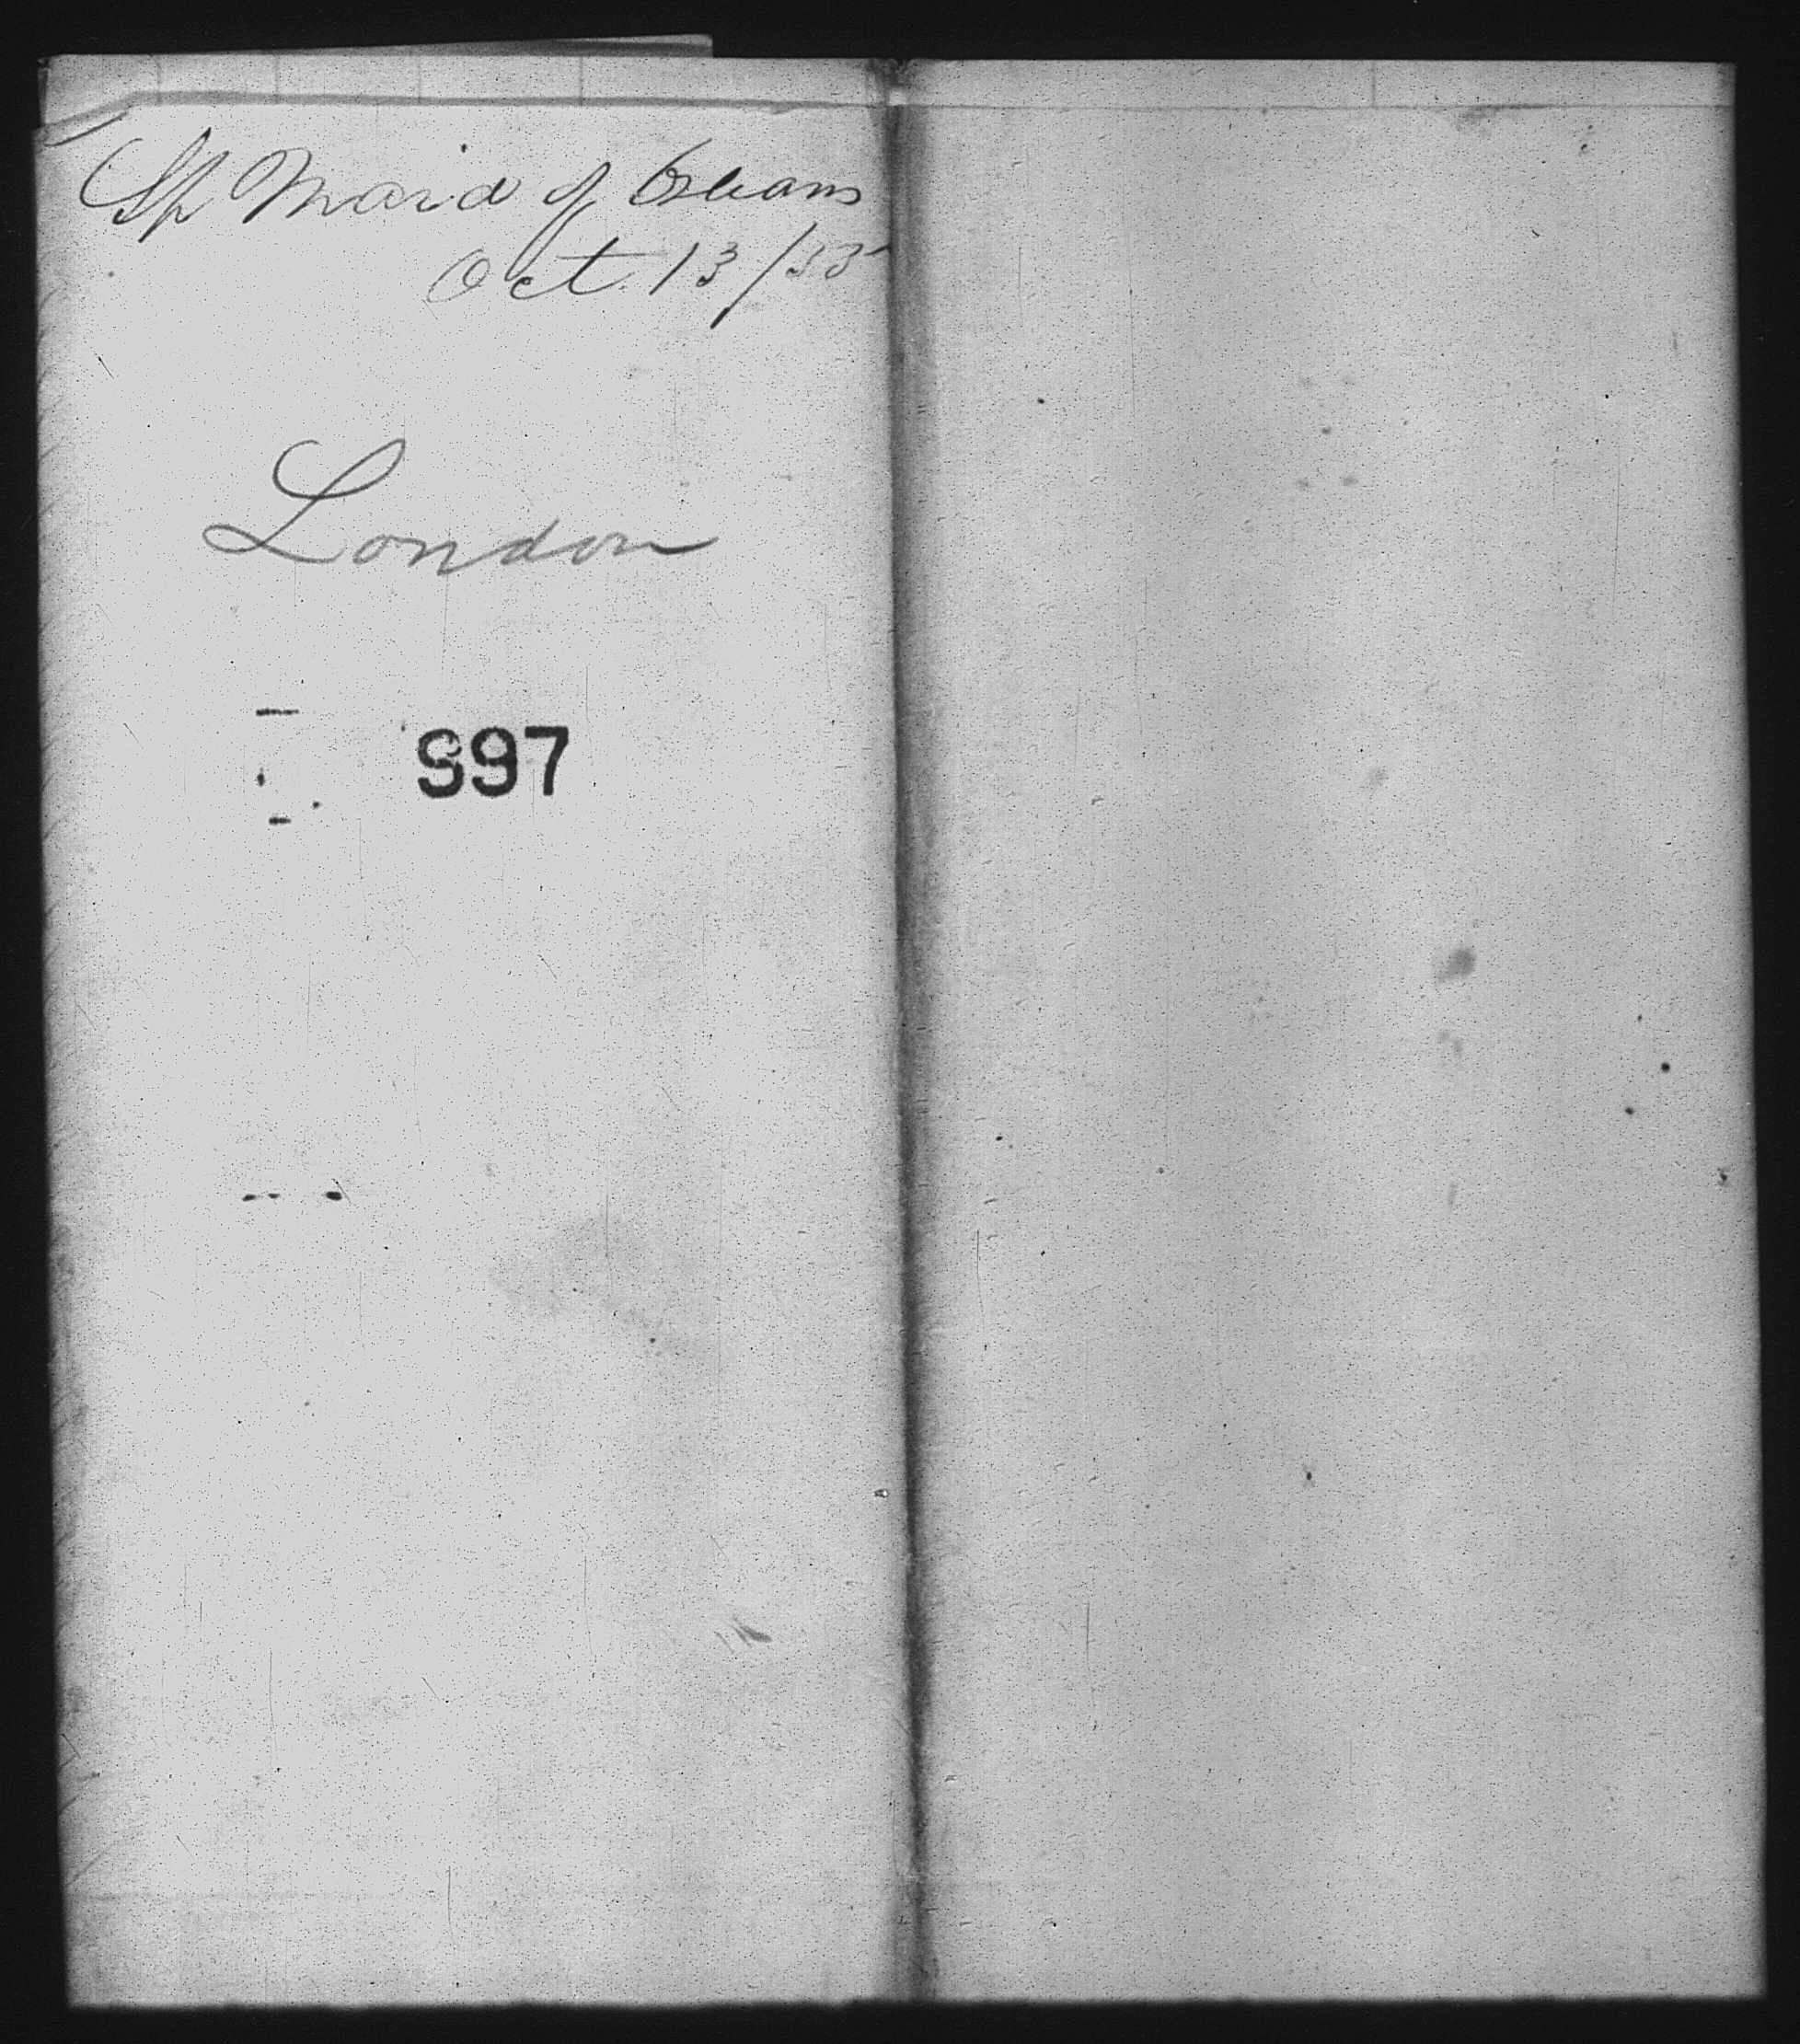 Sh Maid of Orleans
Oct 13/55
London
997